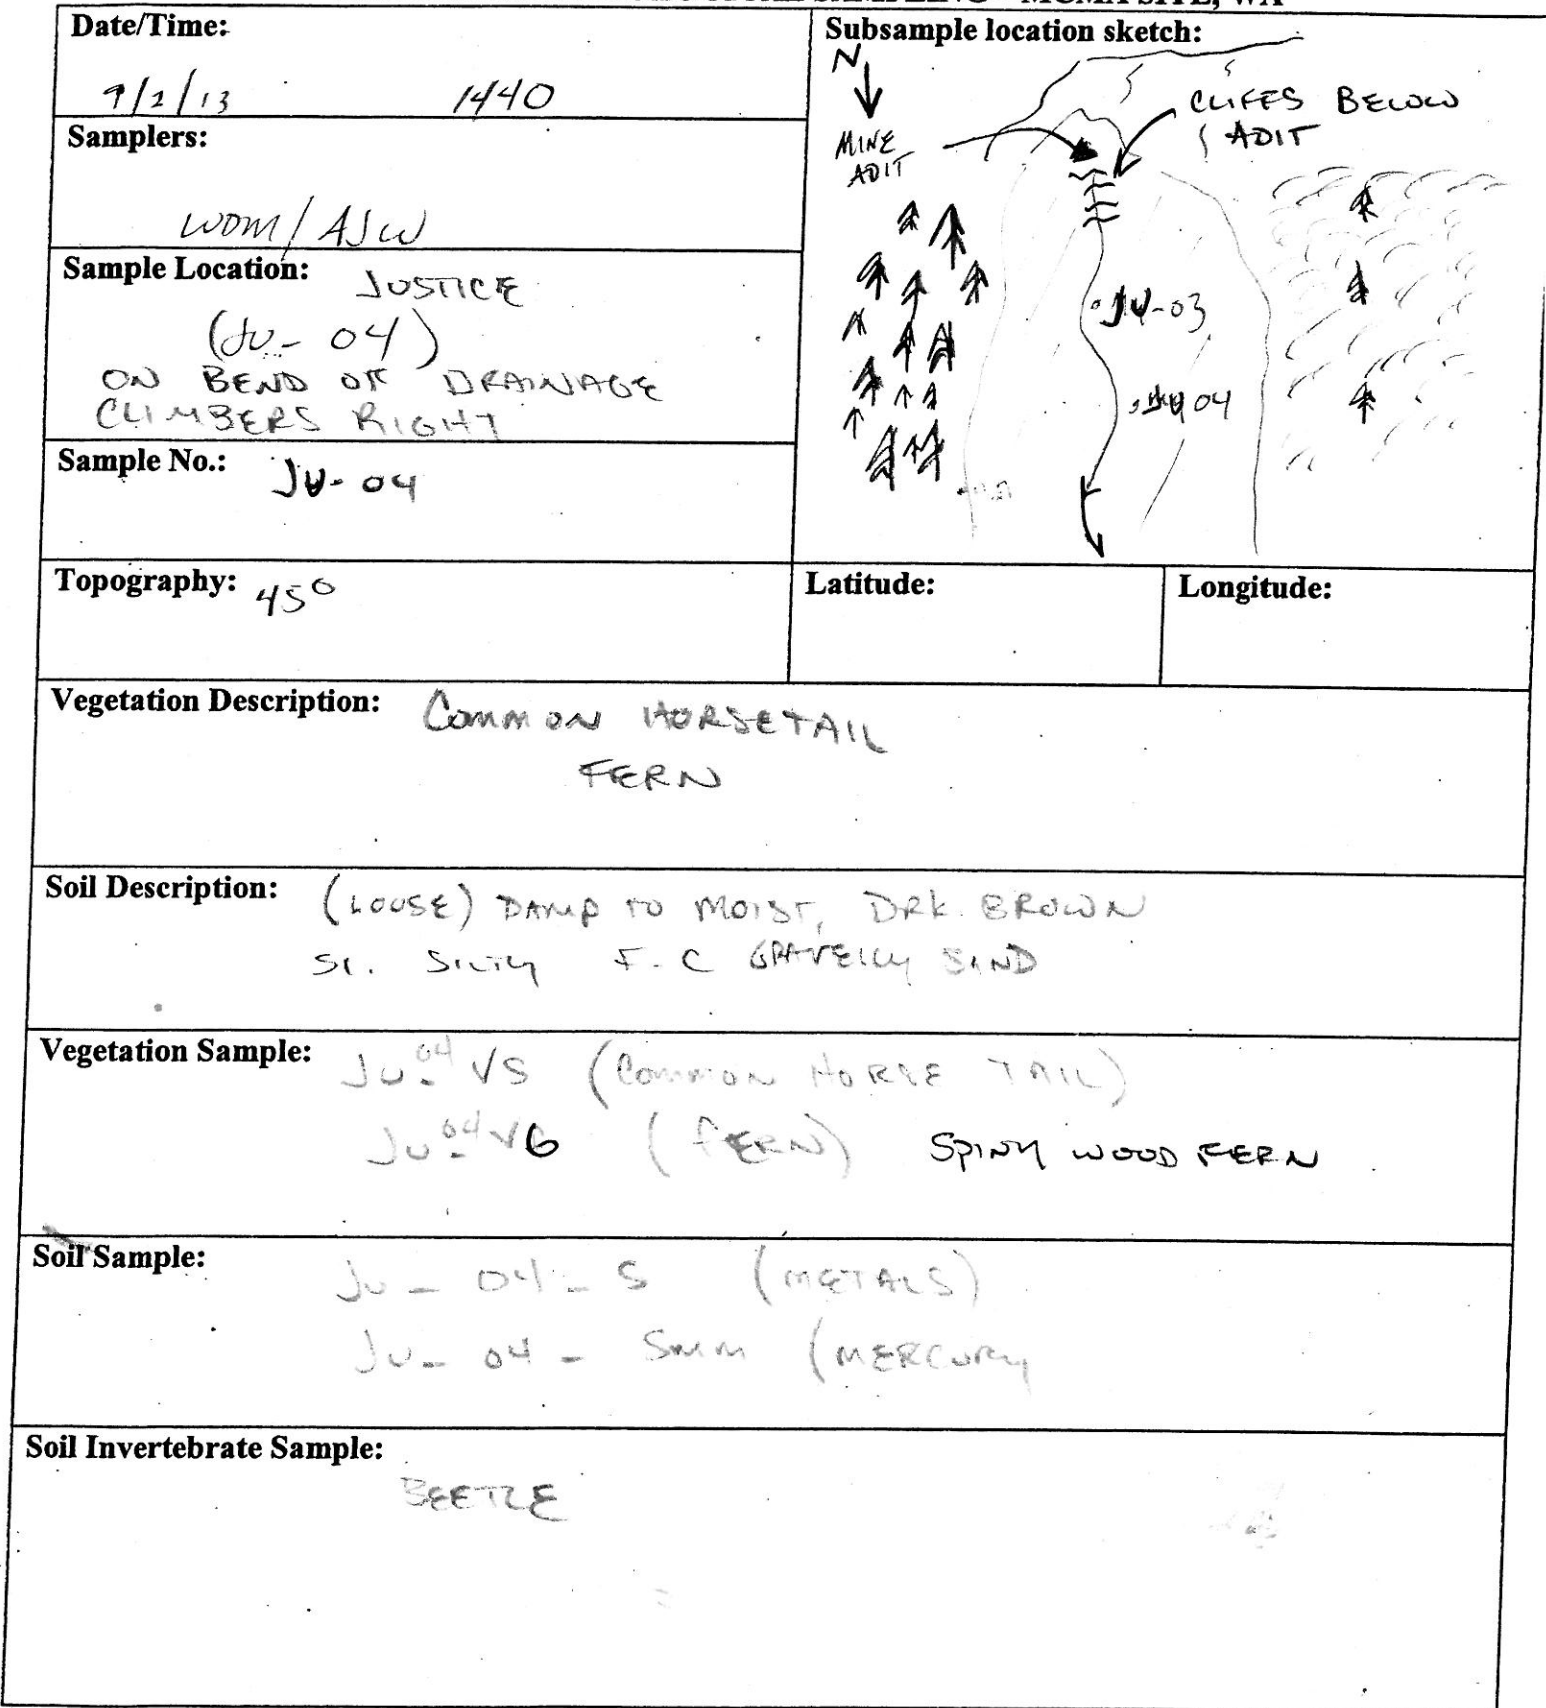 SAMPLING - MCMA SITE, WA
Date/Time:
9/2/13 1440
Samplers:
WDM/AJW
Sample Location: JUSTICE
(JU-04)
ON BEND OF DRAINAGE
CLIMBERS RIGHT
Sample No.: JU-04
Subsample location sketch:
N
CLIFFS BELOW
ADIT
MINE
ADIT
JU-03
04
Topography: 45°
Latitude:
Longitude:
Vegetation Description: COMMON HORSETAIL
FERN
Soil Description: (LOOSE) DAMP TO MOIST, DRK. BROWN
SL. SILTY F-C GRAVELLY SAND
Vegetation Sample: JU-04 VS (COMMON HORSE TAIL)
JU-04 VG (FERN) SPINY WOOD FERN
Soil Sample: JU-04-S (METALS)
JU-04-SMM (MERCURY
Soil Invertebrate Sample:
BEETLE